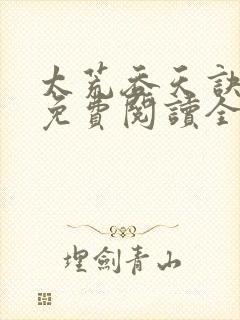 太荒吞天訣
免費閱讀全
埋劍青山